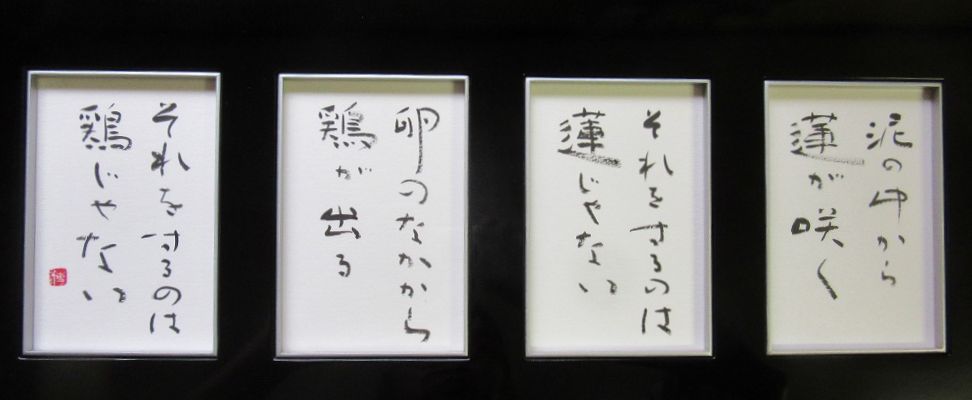 泥の中から
蓮が咲く
それをするのは
蓮じゃない
卵のなかから
鶏が出る
それをするのは
鶏じゃない